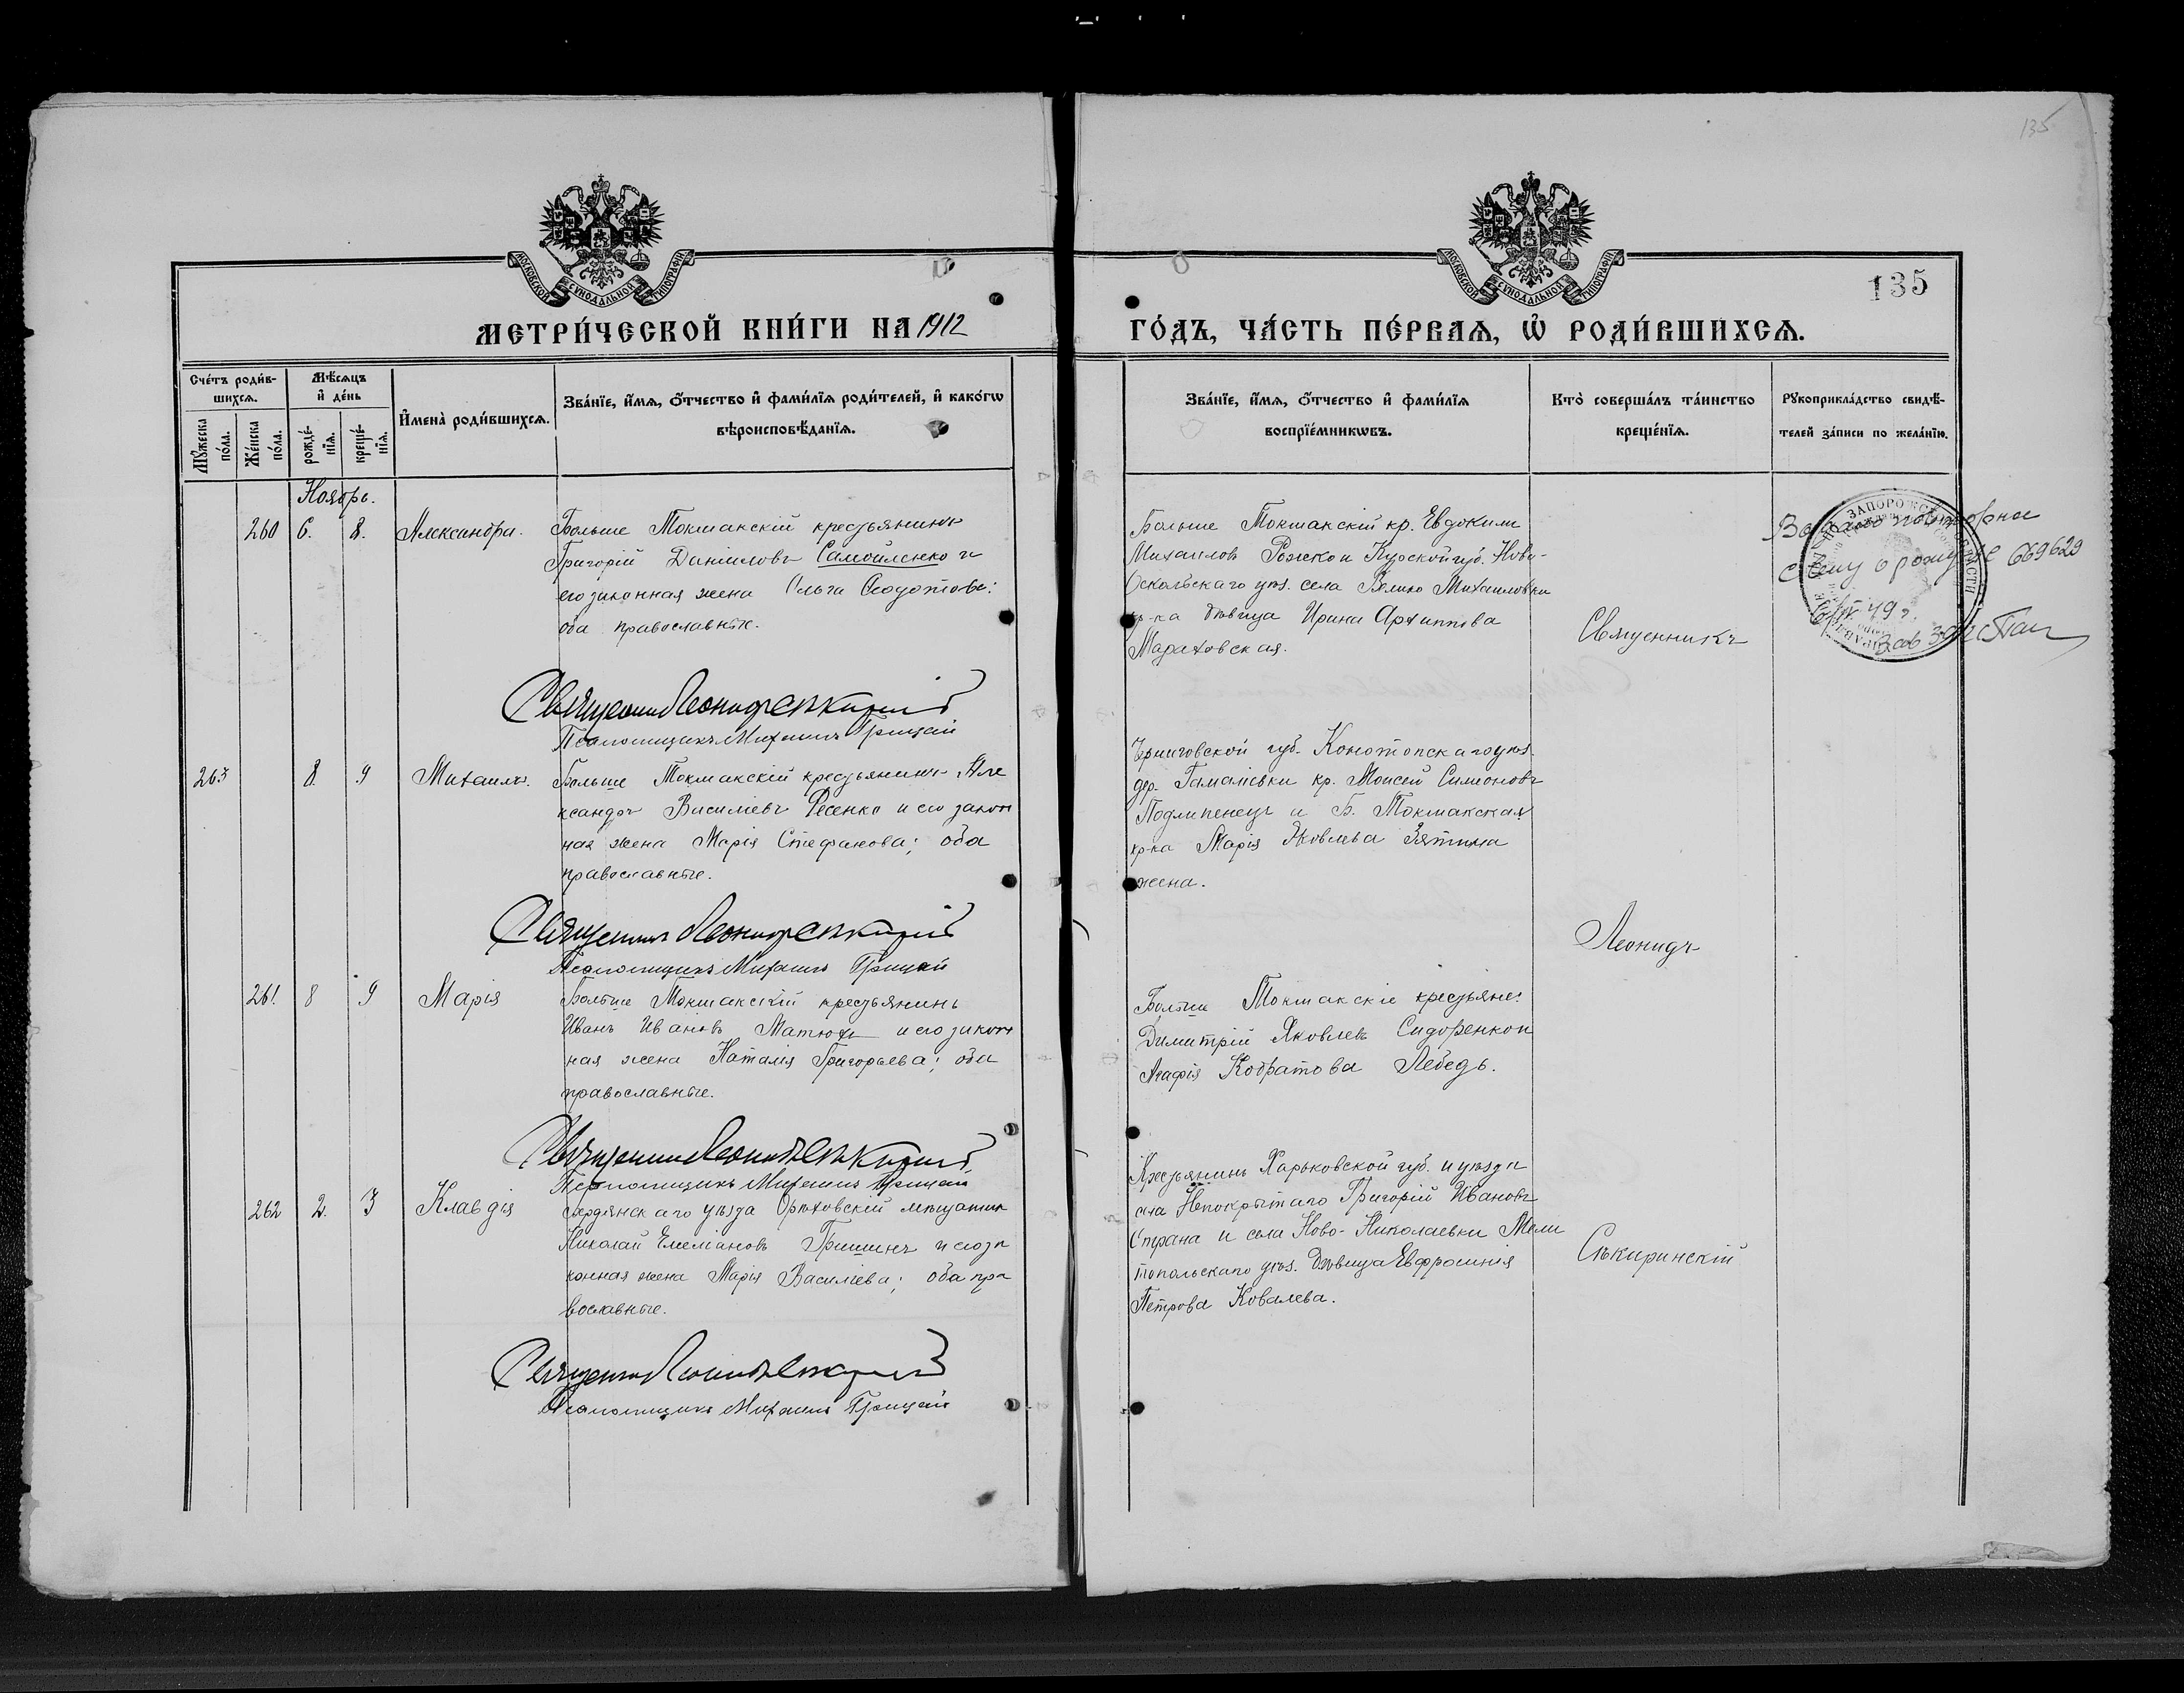 135
МОСКОВСКОЙ СУНОДАЛЬНОЙ ТИПОГРАФІИ
МОСКОВСКОЙ СУНОДАЛЬНОЙ ТИПОГРАФІИ
135
МЕТРИ́ЧЕСКОЙ КНИ́ГИ НА 1912
ГО́ДЪ, ЧА́СТЬ ПЕ́РВАѦ, Ѡ҆ РОДИ́ВШИХСѦ.
Сче́тъ роди́в-
шихсѧ.
Мѣ́сѧцъ
и҆ де́нь
Мꙋ́жеска
по́ла.
Же́нска
по́ла.
рожде́-
нїѧ.
креще́-
нїѧ.
И҆мена̀ роди́вшихсѧ.
Зва́нїе, и҆́мѧ, ѻ҆́тчество и҆ фами́лїѧ роди́телей, и҆ како́гѡ
вѣроисповѣ́данїѧ.
Зва́нїе, и҆́мѧ, ѻ҆́тчество и҆ фами́лїѧ
воспрїе́мникѡвъ.
Кто̀ соверша́лъ та́инство
креще́нїѧ.
Рꙋкоприкла́дство свидѣ́-
телей за́писи по жела́нїю.
Ноябрь.
260 6. 8. Александра.
Больше Токмакскій крестьянинъ
Григорій Даніиловъ Самойленко и
его законная жена Ольга Ѳеодотова:
оба православные.
Священникъ Леонидъ Сѣкиринскій
Псаломщикъ Михаилъ Грицай
Больше Токмакскій кр. Евдоким
Михаиловъ Рожко и Курской губ. Ново-
Оскольскаго уѣз. села Велико Михаиловки
кр-ка дѣвица Ирина Архиппова
Мараховская.
Священникъ
повторное
о рожд 669629
49 г.
263 8. 9 Михаилъ.
Больше Токмакскій крестьянинъ Але
ксандръ Василіевъ Фесенко и его закон
ная жена Марія Стефанова; оба
православные.
Священникъ Леонидъ Сѣкиринскій
Псаломщикъ Михаилъ Грицай
Черниговской губ. Конотопскаго уѣз.
дер. Гамаліевки кр. Моисей Симеоновъ
Подлипенецъ и Б. Токмакская
кр-ка Марія Яковлева Зятина
жена.
Леонидъ
261. 8 9 Марія
Больше Токмакскій крестьянинъ
Иванъ Ивановъ Матюха и его закон
ная жена Наталія Григорьева; оба
православные.
Священникъ Леонидъ Сѣкиринскій
Псаломщикъ Михаилъ Грицай
Больше Токмакскіе крестьяне:
Димитрій Яковлевъ Сидоренко и
Агафія Кодратова Лебедь.
262 2. 3 Клавдія
Бердянскаго уѣзда Орѣховскій мѣщанин
Николай Емеліановъ Гришинъ и его за
конная жена Марія Василіева; оба пра
вославные.
Священникъ Леонидъ Сѣкиринскій
Псаломщикъ Михаилъ Грицай
Крестьянинъ Харьковской губ. и уѣзда
села Непокрытаго Григорій Ивановъ
Страна и села Ново-Николаевки Мели
топольскаго уѣз. дѣвица Евфросинія
Петрова Ковалева.
Сѣкиринскій